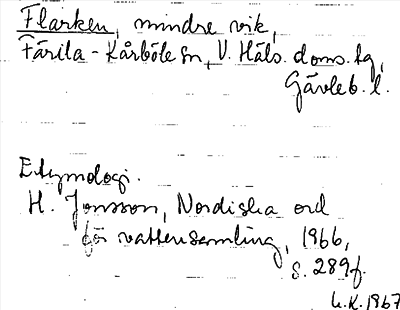 Flarken, mindre vik,
Färila-Kårböle sn, V. Häls. doms. tg,
Gävleb. l.
Etymologi.
H. Jonsson, Nordiska ord
för vattensamling, 1966,
s. 289f.
L.K. 1967